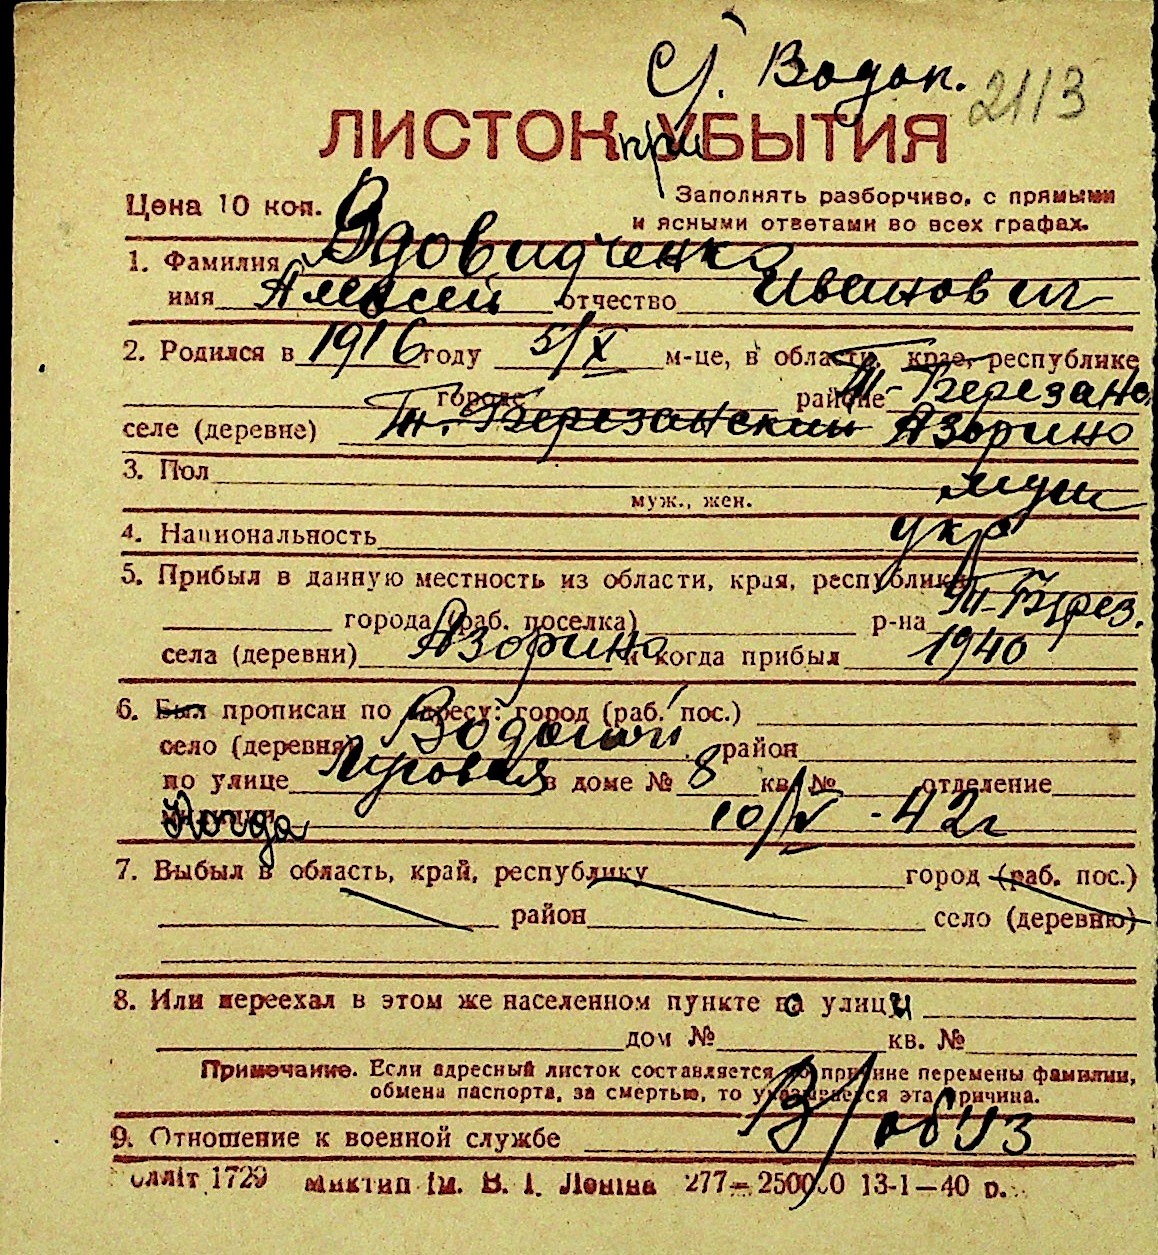 с. Водоп. 2113
ЛИСТОК УБЫТИЯ
при
Цена 10 коп.
Заполнять разборчиво, с прямыми
и ясными ответами во всех графах.
1. Фамилия Вдовидченко
имя Алексей отчество Иванович
2. Родился в 1916 году 5/X м-це, в области, крае, республике
городе районе Т-Березано
селе (деревне) Т. Березанский Азорино
3. Пол муж
муж., жен.
4. Национальность укр
5. Прибыл в данную местность из области, края, республики
города (раб. поселка) р-на Т-Берез.
села (деревни) Азорино и когда прибыл 1940
6. Был прописан по адресу: город (раб. пос.)
село (деревня) Водопой район
по улице Луговая в доме № 8 кв. № отделение
милиции Когда 10/V -42г
7. Выбыл в область, край, республику город (раб. пос.)
район село (деревню)
8. Или переехал в этом же населенном пункте на улицу
дом № кв. №
Примечание. Если адресный листок составляется по причине перемены фамилии,
обмена паспорта, за смертью, то указывается эта причина.
9. Отношение к военной службе В/обяз
1729 ім. В. І. Леніна 277—250000 13-1—40 р.